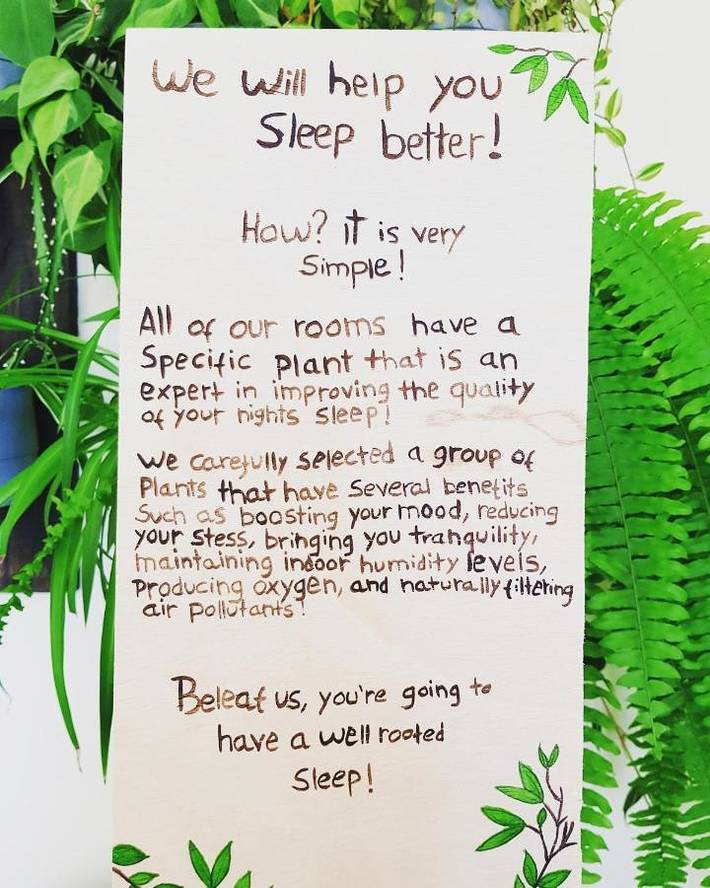 We will help you
Sleep better!
How? it is very
Simple!
All of our rooms have a
Specific plant that is an
expert in improving the quality
of your nights sleep!
We carefully selected a group of
Plants that have several benefits
Such as boosting your mood, reducing
your stess, bringing you tranquility,
maintaining indoor humidity levels,
producing oxygen, and naturally filtering
air pollutants!
Beleaf us, you're going to
have a well rooted
Sleep!